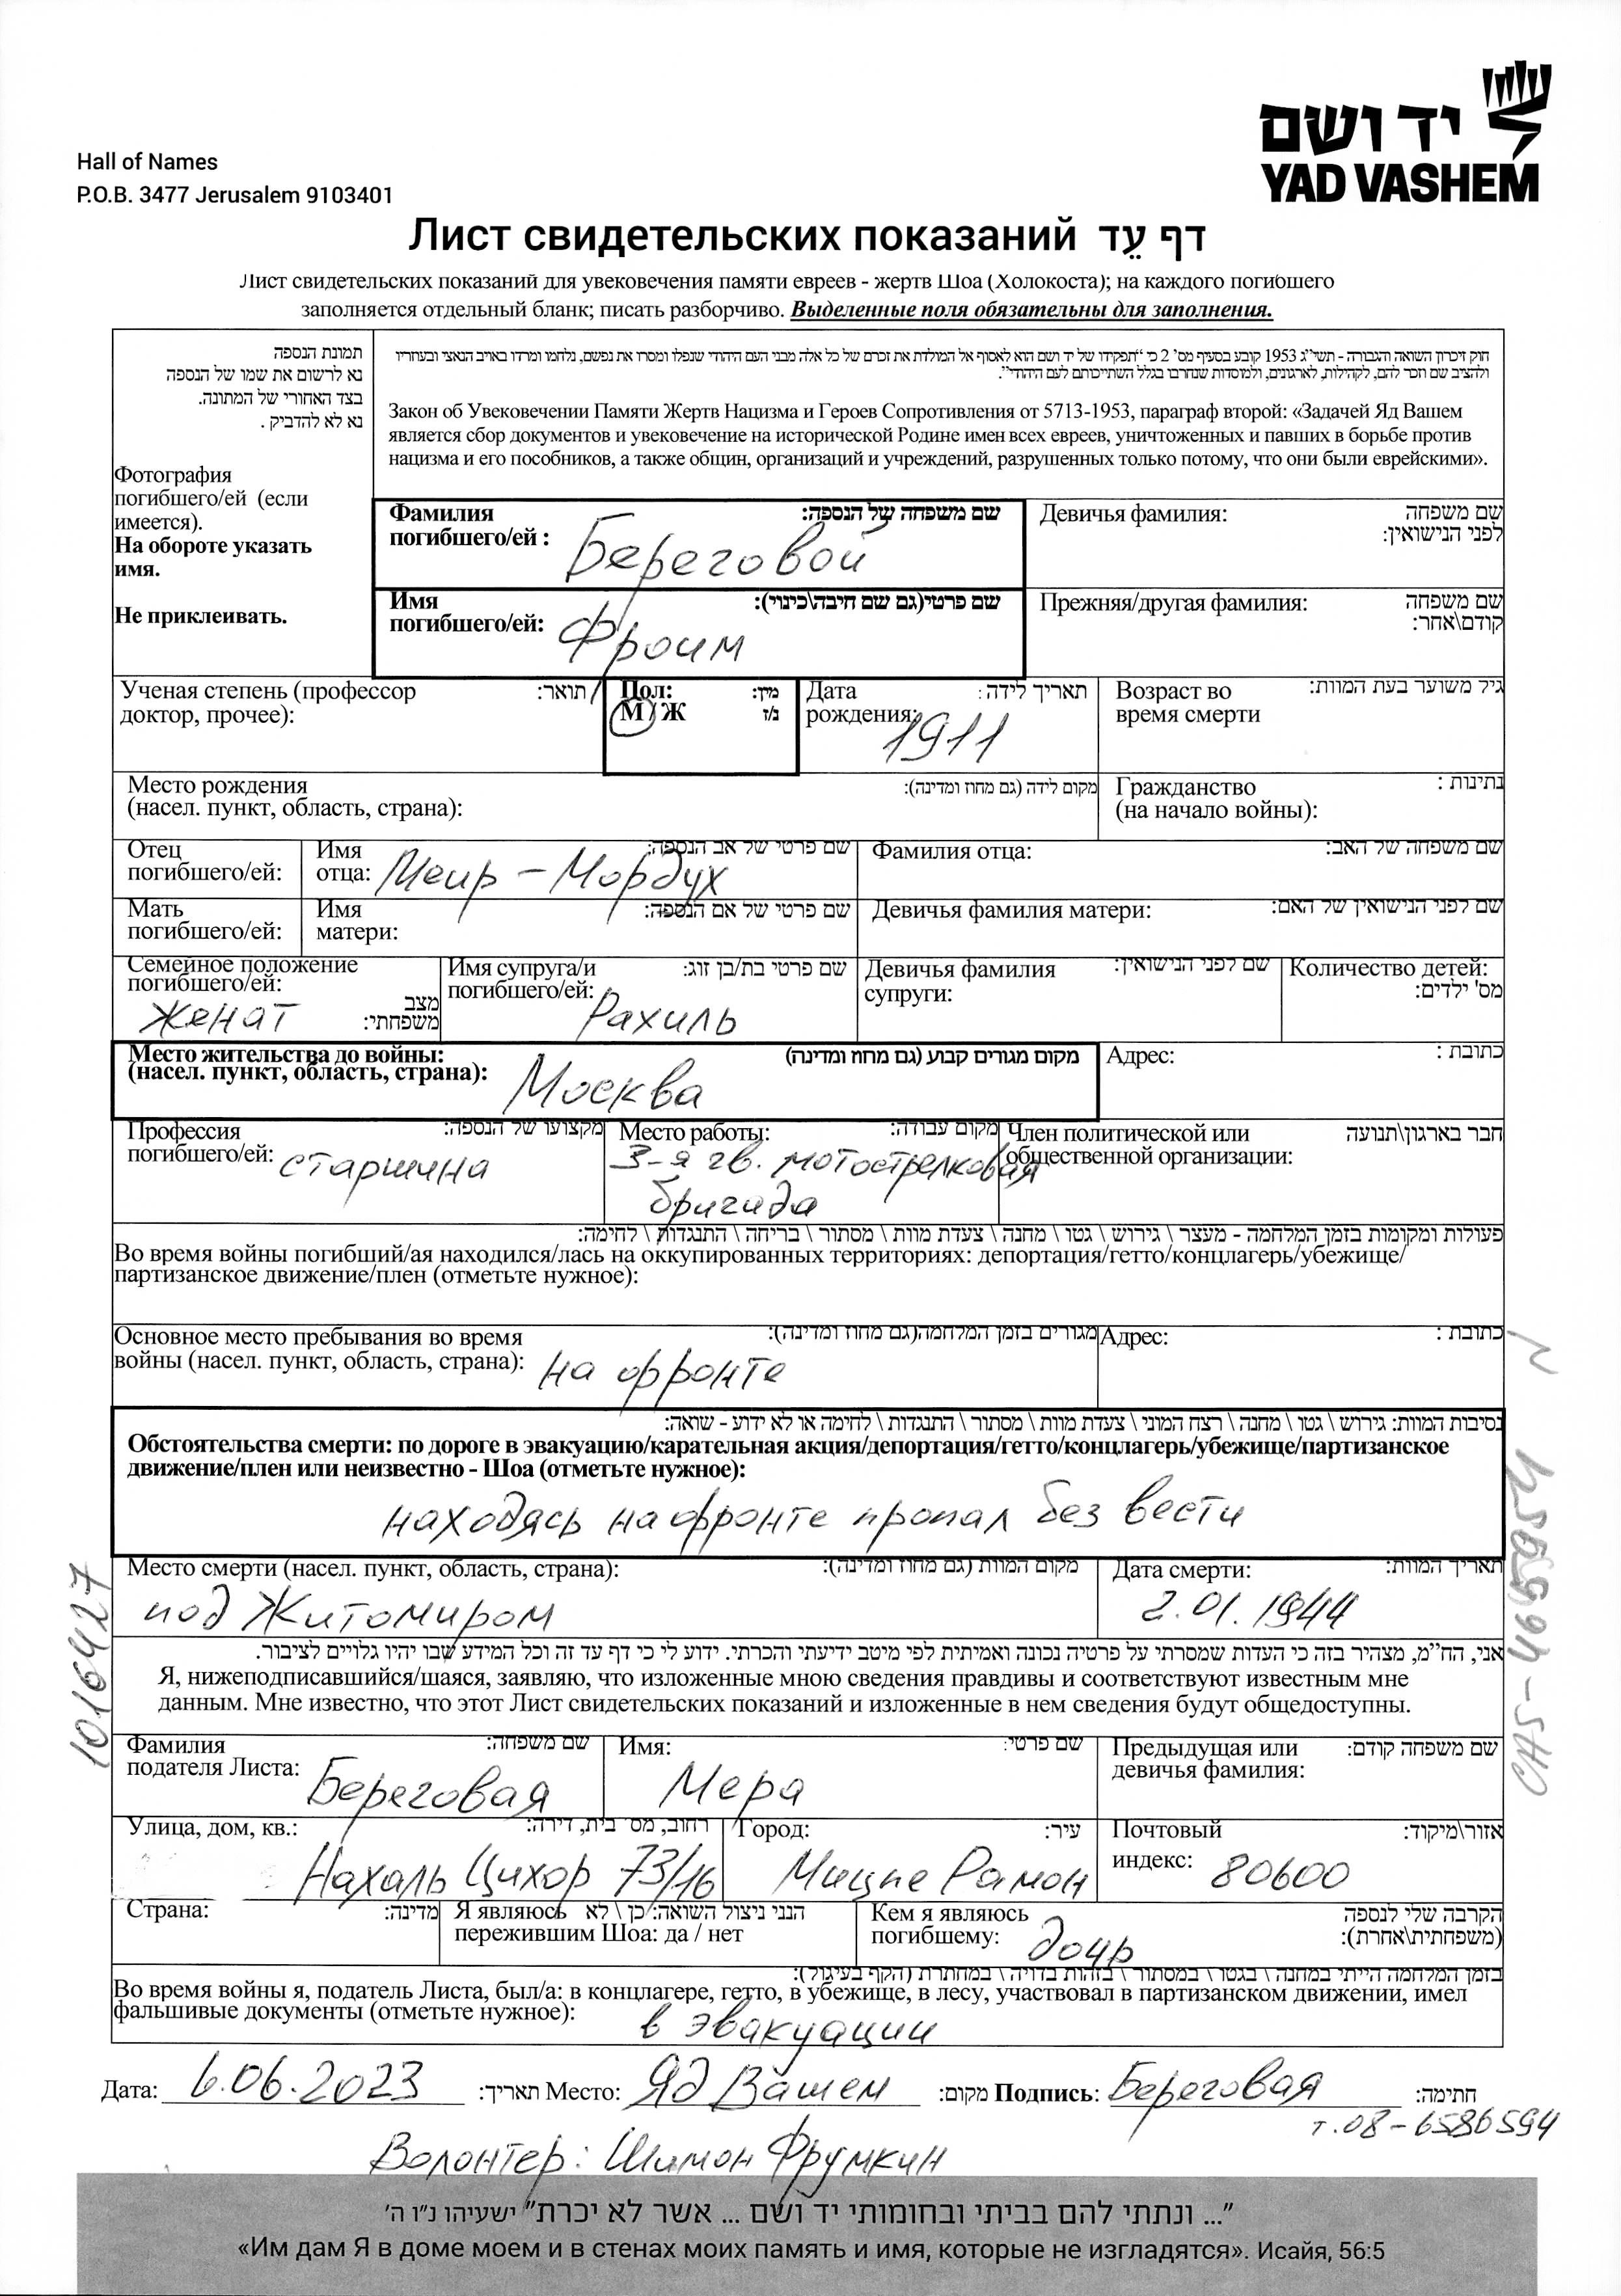 יד ושם
YAD VASHEM
Hall of Names
P.O.B. 3477 Jerusalem 9103401
Лист свидетельских показаний דף עֵד
Лист свидетельских показаний для увековечения памяти евреев - жертв Шоа (Холокоста); на каждого погибшего
заполняется отдельный бланк; писать разборчиво. Выделенные поля обязательны для заполнения.
תמונת הנספה
נא לרשום את שמו של הנספה
בצד האחורי של התמונה.
נא לא להדביק .
Фотография
погибшего/ей (если
имеется).
На обороте указать
имя.
Не приклеивать.
חוק זיכרון השואה והגבורה - תשי"ג 1953 קובע בסעיף מס' 2 כי "תפקידו של יד ושם הוא לאסוף אל המולדת את זכרם של כל אלה מבני העם היהודי שנפלו ומסרו את נפשם, נלחמו ומרדו באויב הנאצי ובעוזריו
ולהציב שם וזכר להם, לקהילות, לארגונים, ולמוסדות שנחרבו בגלל השתייכותם לעם היהודי".
Закон об Увековечении Памяти Жертв Нацизма и Героев Сопротивления от 5713-1953, параграф второй: «Задачей Яд Вашем
является сбор документов и увековечение на исторической Родине имен всех евреев, уничтоженных и павших в борьбе против
нацизма и его пособников, а также общин, организаций и учреждений, разрушенных только потому, что они были еврейскими».
Фамилия שם משפחה של הנספה:
погибшего/ей : Береговой
Девичья фамилия: שם משפחה
לפני הנישואין:
Имя שם פרטי(גם שם חיבה\כינוי):
погибшего/ей: Фроим
Прежняя/другая фамилия: שם משפחה
קודם\אחר:
Ученая степень (профессор תואר:
доктор, прочее):
Пол: מין:
М / Ж ז/נ
Дата תאריך לידה :
рождения: 1911
Возраст во גיל משוער בעת המוות:
время смерти
Место рождения מקום לידה (גם מחוז ומדינה):
(насел. пункт, область, страна):
Гражданство נתינות :
(на начало войны):
Отец
погибшего/ей:
Имя שם פרטי של אב הנספה:
отца: Меир - Мордух
Фамилия отца: שם משפחה של האב:
Мать
погибшего/ей:
Имя שם פרטי של אם הנספה:
матери:
Девичья фамилия матери: שם לפני הנישואין של האם:
Семейное положение
погибшего/ей:
женат מצב
משפחתי:
Имя супруга/и שם פרטי בת/בן זוג:
погибшего/ей: Рахиль
Девичья фамилия שם לפני הנישואין:
супруги:
Количество детей:
מס' ילדים:
Место жительства до войны: מקום מגורים קבוע (גם מחוז ומדינה)
(насел. пункт, область, страна): Москва
Адрес: כתובת :
Профессия מקצועו של הנספה:
погибшего/ей: старшина
Место работы: מקום עבודה:
3-я гв. мотострелковая
бригада
Член политической или חבר בארגון\תנועה
общественной организации:
פעולות ומקומות בזמן המלחמה - מעצר \ גירוש \ גטו \ מחנה \ צעדת מוות \ מסתור \ בריחה \ התנגדות \ לחימה:
Во время войны погибший/ая находился/лась на оккупированных территориях: депортация/гетто/концлагерь/убежище/
партизанское движение/плен (отметьте нужное):
Основное место пребывания во время מגורים בזמן המלחמה(גם מחוז ומדינה):
войны (насел. пункт, область, страна): на фронте
Адрес: כתובת :
נסיבות המוות: גירוש \ גטו \ מחנה \ רצח המוני \ צעדת מוות \ מסתור \ התנגדות \ לחימה או לא ידוע - שואה:
Обстоятельства смерти: по дороге в эвакуацию/карательная акция/депортация/гетто/концлагерь/убежище/партизанское
движение/плен или неизвестно - Шоа (отметьте нужное):
находясь на фронте пропал без вести
Место смерти (насел. пункт, область, страна): מקום המוות (גם מחוז ומדינה):
под Житомиром
Дата смерти: תאריך המוות:
2.01.1944
אני, הח"מ, מצהיר בזה כי העדות שמסרתי על פרטיה נכונה ואמיתית לפי מיטב ידיעתי והכרתי. ידוע לי כי דף עד זה וכל המידע שבו יהיו גלויים לציבור.
Я, нижеподписавшийся/шаяся, заявляю, что изложенные мною сведения правдивы и соответствуют известным мне
данным. Мне известно, что этот Лист свидетельских показаний и изложенные в нем сведения будут общедоступны.
Фамилия שם משפחה:
подателя Листа: Береговая
Имя: שם פרטי:
Мера
Предыдущая или שם משפחה קודם:
девичья фамилия:
Улица, дом, кв.: רחוב, מס' בית, דירה:
Нахаль Цихор 73/16
Город: עיר:
Мицпе Рамон
Почтовый אזור\מיקוד:
индекс: 80600
Страна: מדינה:
Я являюсь הנני ניצול השואה: כן \ לא
пережившим Шоа: да / нет
Кем я являюсь הקרבה שלי לנספה
погибшему: дочь (משפחתית\אחרת):
בזמן המלחמה הייתי במחנה \ בגטו \ במסתור \ בזהות בדויה \ במחתרת (הקף בעיגול):
Во время войны я, податель Листа, был/а: в концлагере, гетто, в убежище, в лесу, участвовал в партизанском движении, имел
фальшивые документы (отметьте нужное): в эвакуации
Дата: 6.06.2023 תאריך: Место: Яд Вашем מקום: Подпись: Береговая חתימה:
т. 08-6586594
Волонтер: Шимон Фрумкин
"... ונתתי להם בביתי ובחומותי יד ושם ... אשר לא יכרת" ישעיהו נ"ו ה'
«Им дам Я в доме моем и в стенах моих память и имя, которые не изгладятся». Исайя, 56:5
10164427